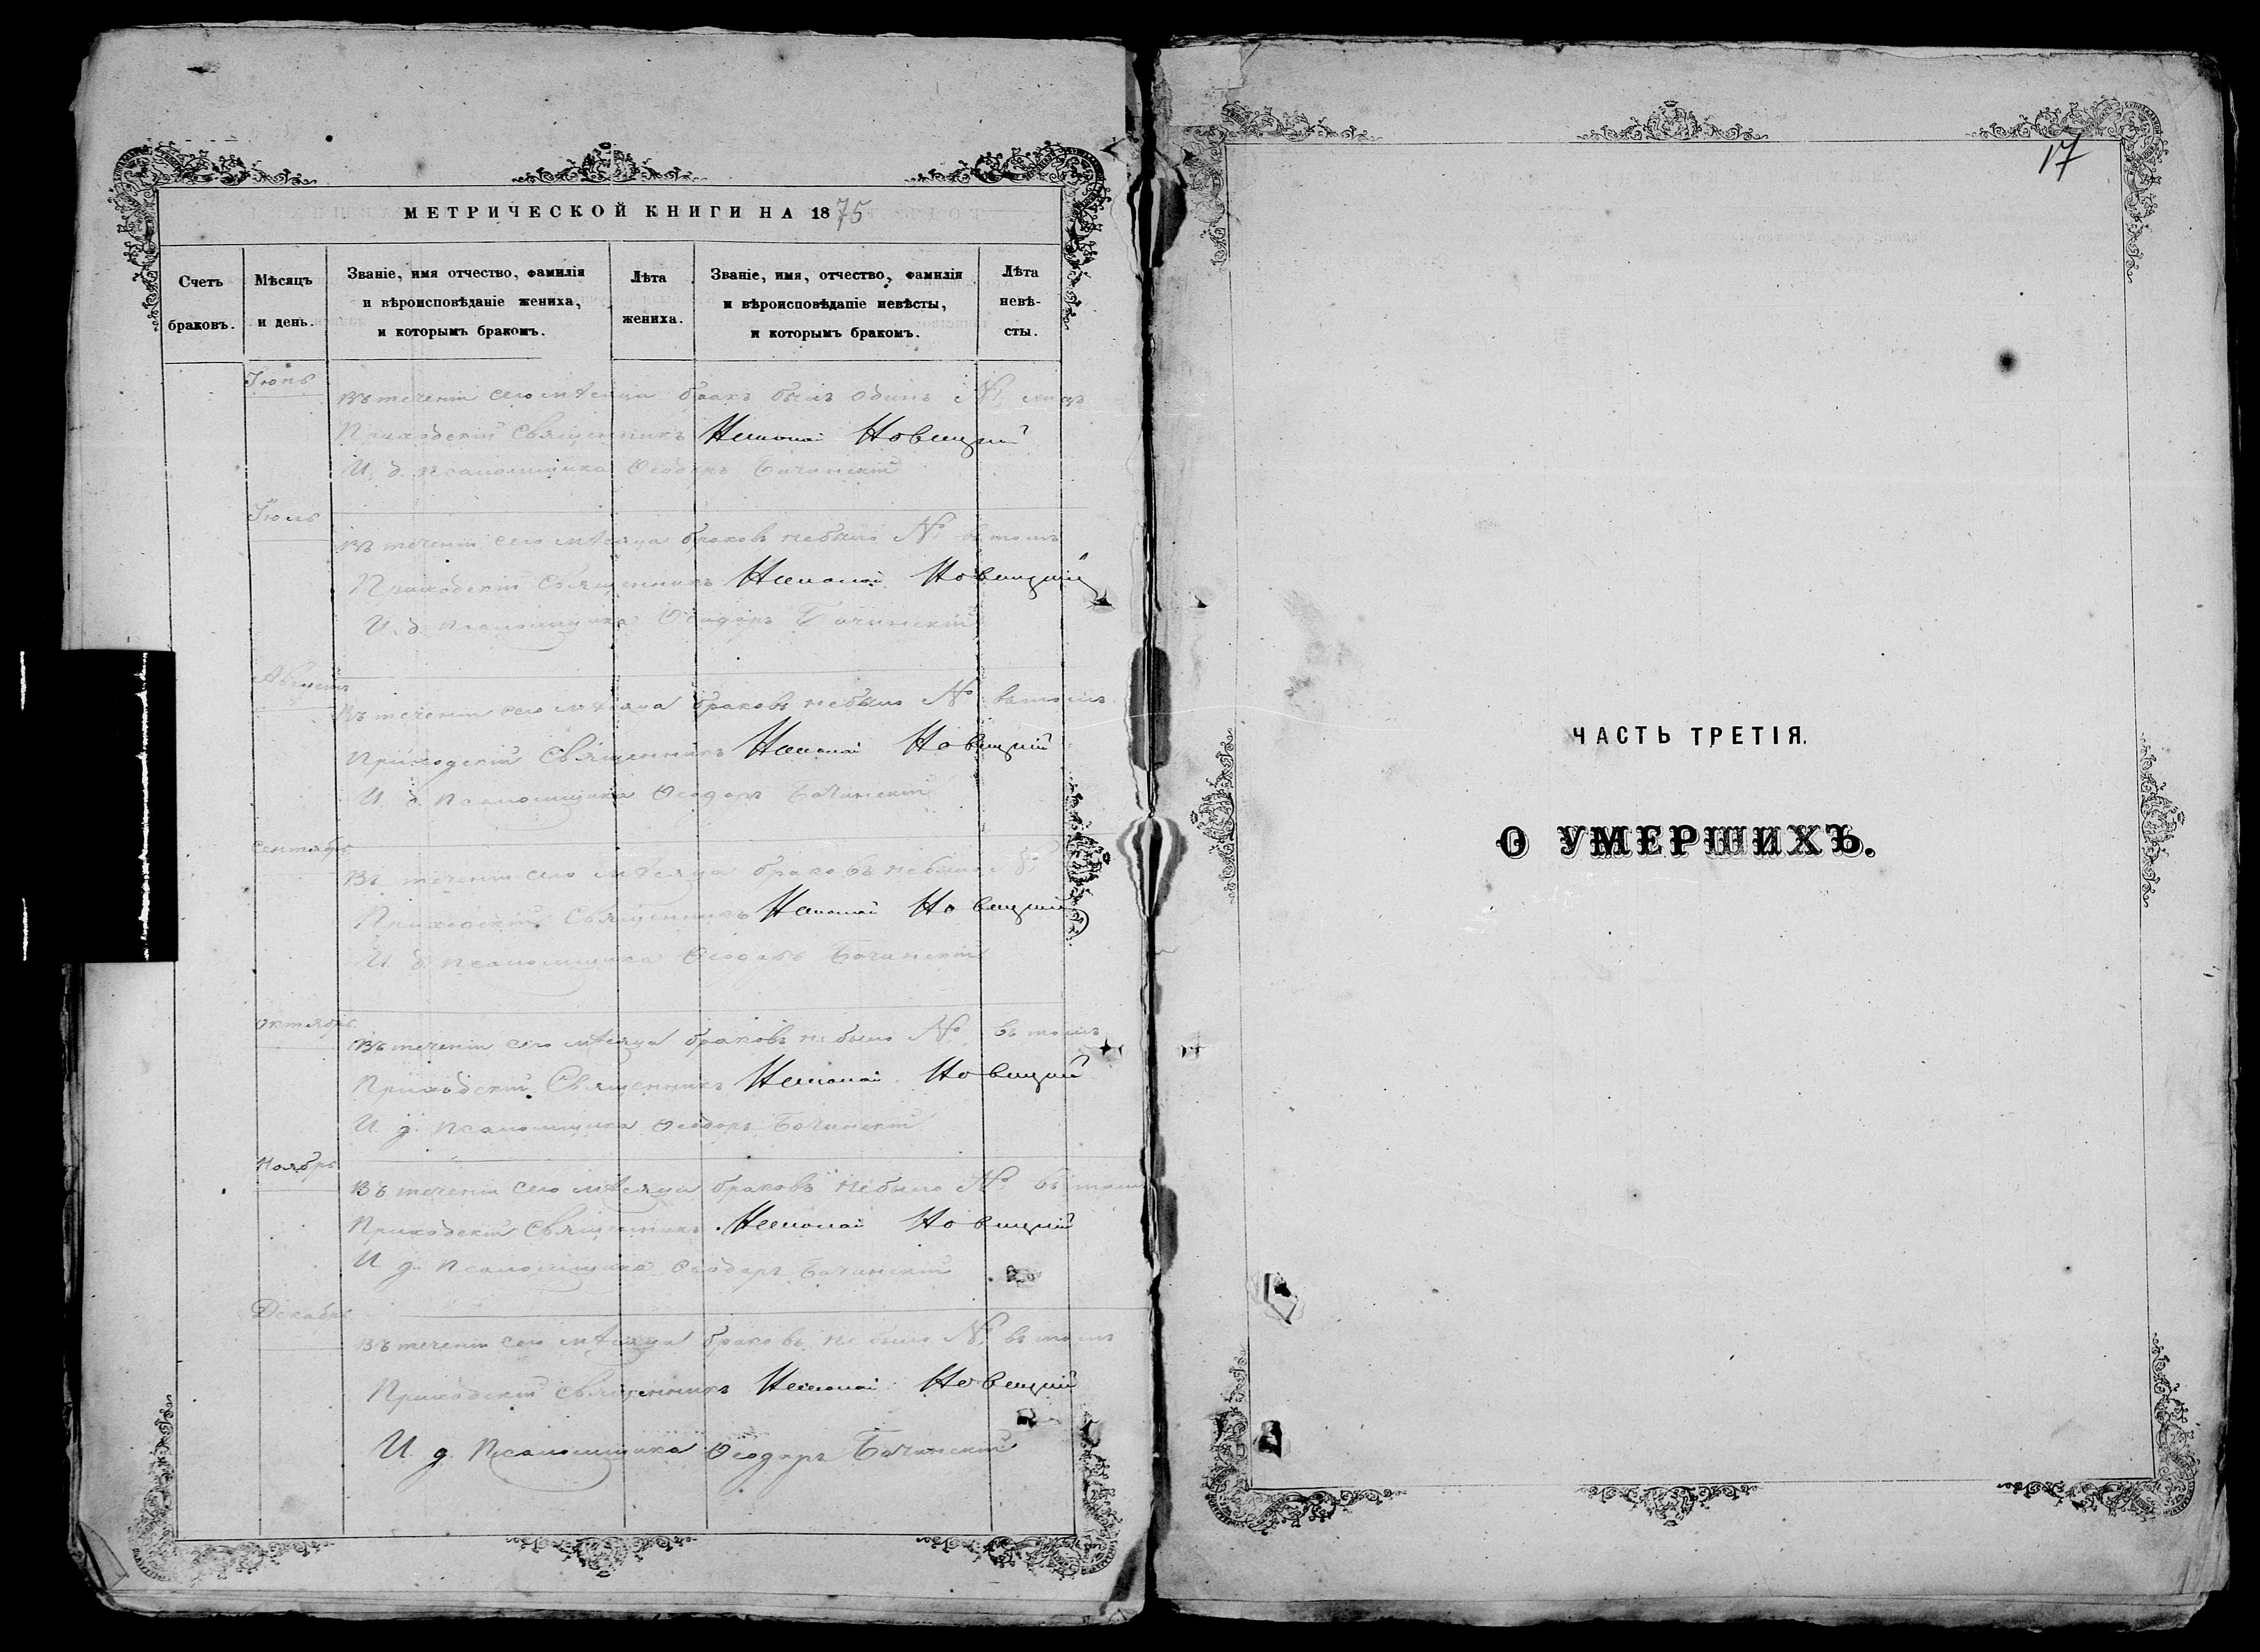 МЕТРИЧЕСКОЙ КНИГИ НА 1875
Счетъ браковъ.
Мѣсяцъ и день.
Званіе, имя отчество, фамилія
и вѣроисповѣданіе жениха,
и которымъ бракомъ.
Лѣта жениха.
Званіе, имя, отчество, фамилія
и вѣроисповѣданіе невѣсты,
и которымъ бракомъ.
Лѣта невѣ-
сты.
Іюнь
Въ теченіи сего мѣсяца бракъ былъ одинъ №
Приходскій Священникъ Николай Новицкій
И. д. псаломщика Ѳеодоръ Бачинскій
Іюль
Въ теченіи сего мѣсяца браковъ небыло № въ томъ
Приходскій Священникъ Николай Новицкій
И. д. псаломщика Ѳеодоръ Бачинскій
Августъ
Въ теченіи сего мѣсяца браковъ небыло № въ томъ
Приходскій Священникъ Николай Новицкій
И. д. псаломщика Ѳеодоръ Бачинскій
Сентябрь
Въ теченіи сего мѣсяца браковъ небыло №
Приходскій Священникъ Николай Новицкій
И. д. псаломщика Ѳеодоръ Бачинскій
Октябрь
Въ теченіи сего мѣсяца браковъ небыло № въ томъ
Приходскій Священникъ Николай Новицкій
И. д. псаломщика Ѳеодоръ Бачинскій
Ноябрь
Въ теченіи сего мѣсяца браковъ небыло № въ томъ
Приходскій Священникъ Николай Новицкій
И д. псаломщика Ѳеодоръ Бачинскій
Декабрь
Въ теченіи сего мѣсяца браковъ не было № въ томъ
Приходскій Священникъ Николай Новицкій
И. д. Псаломщика Ѳеодоръ Бачинскій
17
ЧАСТЬ ТРЕТІЯ.
О УМЕРШИХЪ.